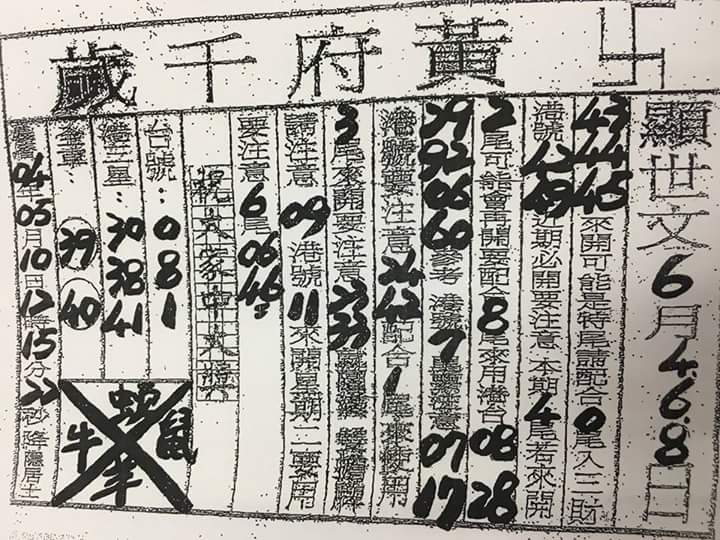 卐黃府千歲
顯世文6月4.6.8日
43 44 45來開可能是特尾請配合0尾入三財
港號42 49近期必開要注意本期4尾若來開
2尾可能會再開要配合8尾來用港台08 28
39 92 06 60參考港號7尾請注意07 17
港號要注意24 42配合1尾來使用
3尾來開要注意23 33
請注意09港號11來開星期二要用
要注意6尾06 46
祝大家中大獎
台號：0 8 1
港三星：30 38 41
39 40
04年05月10日12時15分22秒降隱居士
蛇
牛 鼠
羊